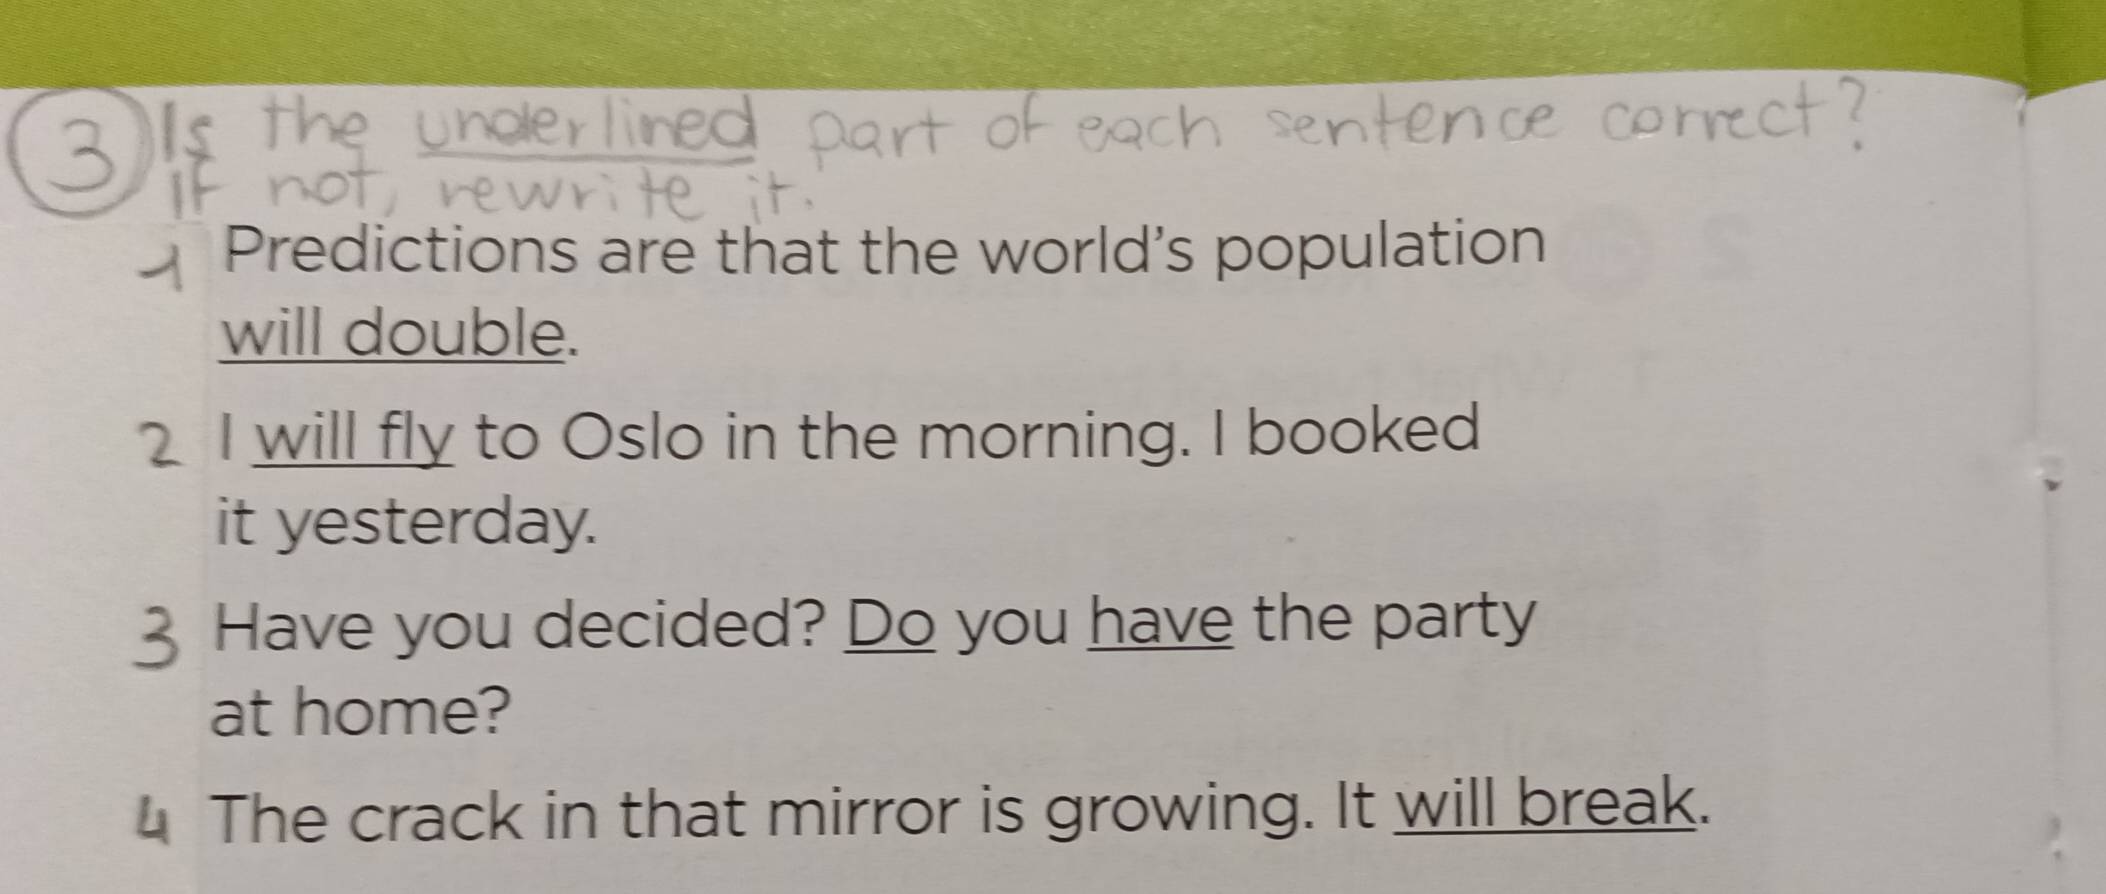 3 Is the underlined part of each sentence correct?
If not, rewrite it.
1 Predictions are that the world's population
will double.
2 I will fly to Oslo in the morning. I booked
it yesterday.
3 Have you decided? Do you have the party
at home?
4 The crack in that mirror is growing. It will break.